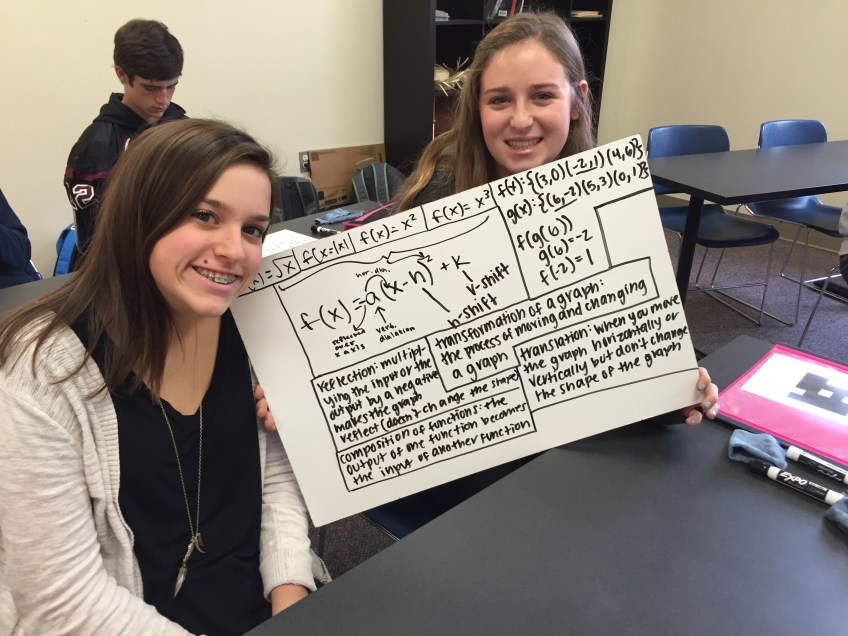 f(x)=√x
f(x)=|x|
f(x)=x²
f(x)=x³
f(x):{(3,0)(-2,1)(4,6)}
g(x):{(6,-2)(5,3)(0,1)}
f(g(6))
g(6)=-2
f(-2)=1
hor. dia.
f(x)=a(x-h)² + K
reflects
over
x axis
vert.
dialation
h-shift
v-shift
transformation of a graph:
the process of moving and changing
a graph
reflection: multipl-
ying the input or the
output by a negative
makes the graph
reflect (doesn't change the shape)
translation: when you move
the graph horizontally or
vertically but don't change
the shape of the graph
composition of functions: the
output of one function becomes
the input of another function
2